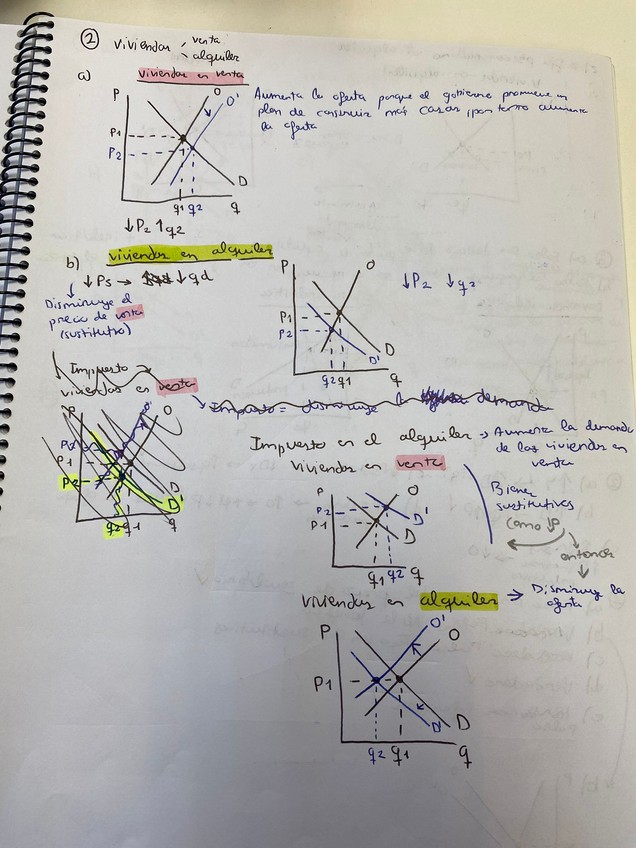 ② viviendas
venta
alquiler
a) viviendas en venta
P
O
O'
P1
P2
D
q1 q2 q
↓P2 ↑q2
Aumenta la oferta porque el gobierno promueve un
plan de construir más casas, por tanto aumenta
la oferta
b) viviendas en alquiler
↓Ps → ↓qd
Disminuye el
precio de venta
(sustitutivo)
P
O
P1
P2
D
D'
q2 q1 q
↓P2 ↓q2
Impuesto
viviendas en venta
P
O'
O
P1
P2
D
D'
q2 q1 q
Impuesto = disminuye la demanda
Impuesto en el alquiler → Aumenta la demanda
de las viviendas en
venta
viviendas en venta
Bienes
sustitutivos
como ↓P
entonces
P
O
P2
P1
D'
D
q1 q2 q
viviendas en alquiler → Disminuye la
oferta
P
O'
O
P1
D'
D
q2 q1 q